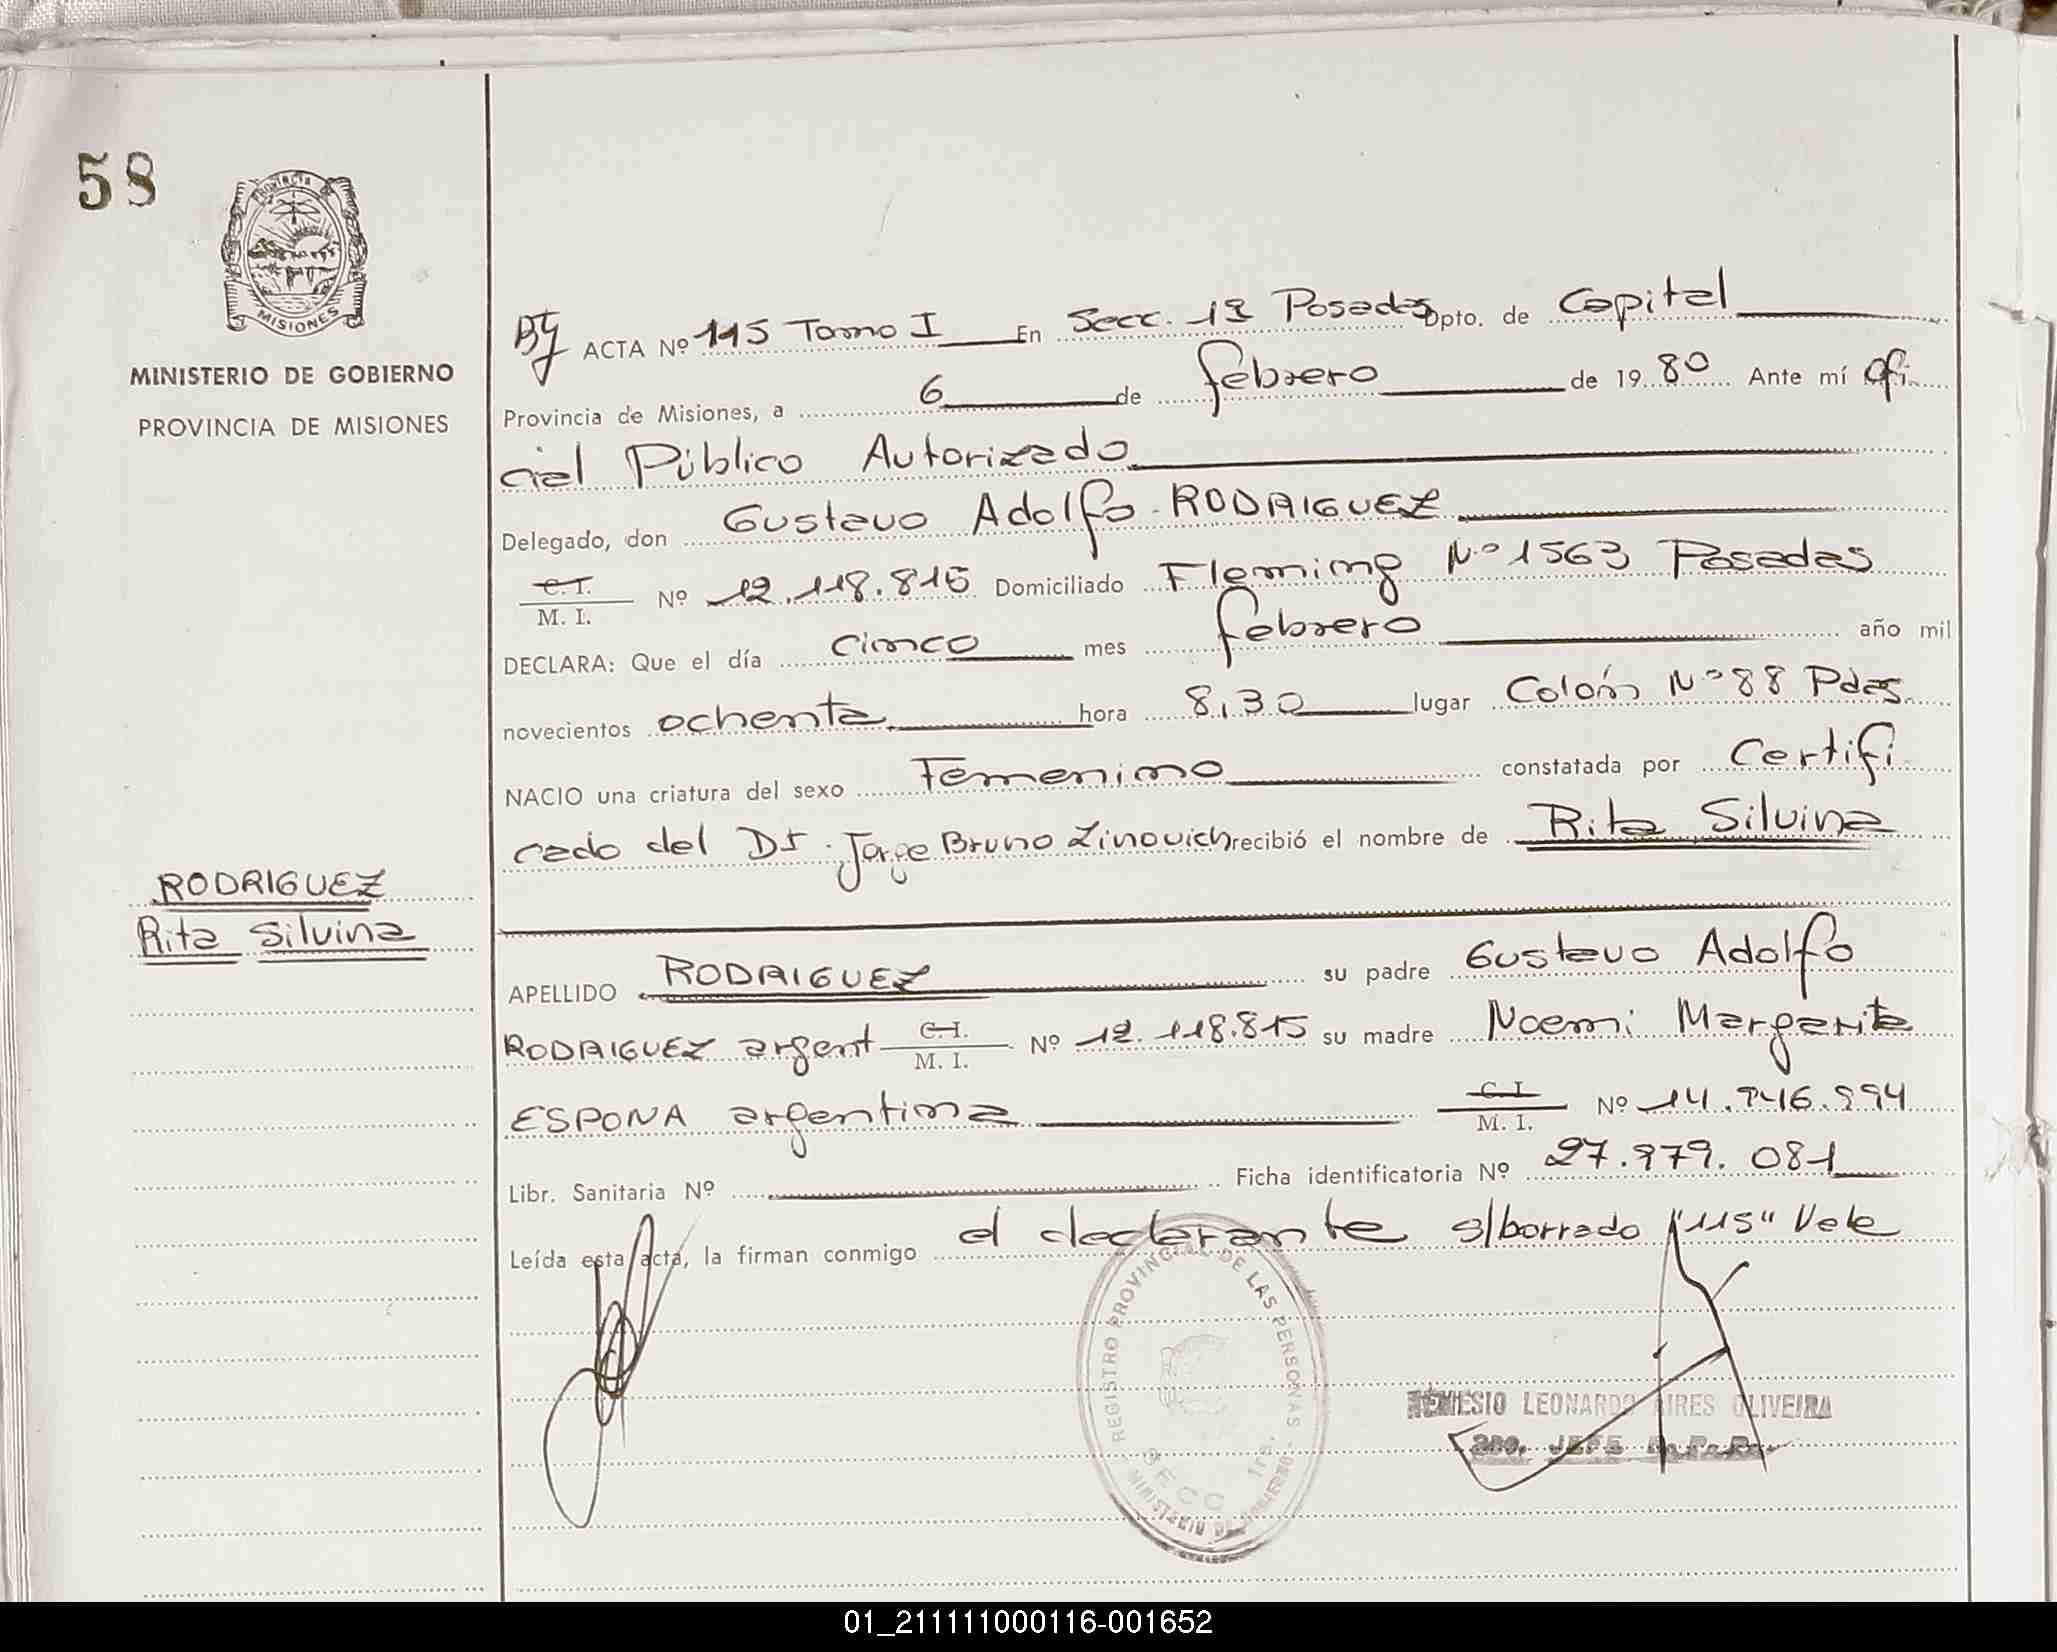 58
PROVINCIA DE
MISIONES
MINISTERIO DE GOBIERNO
PROVINCIA DE MISIONES
ACTA Nº 115 Tomo I En Secc. 1ª Posadas Dpto. de Capital
Provincia de Misiones, a 6 de febrero de 1980 Ante mí ofi
cial Público Autorizado
Delegado, don Gustavo Adolfo RODRIGUEZ
C.I. / M. I. Nº 12.118.815 Domiciliado Fleming Nº 1563 Posadas
DECLARA: Que el día cinco mes febrero año mil
novecientos ochenta hora 8,30 lugar Colón Nº 88 Pdas.
NACIO una criatura del sexo Femenino constatada por Certifi
cado del Dr. Jorge Bruno Zinovich recibió el nombre de Rita Silvina
RODRIGUEZ
Rita Silvina
APELLIDO RODRIGUEZ su padre Gustavo Adolfo
RODRIGUEZ argent C.I. / M. I. Nº 12.118.815 su madre Noemi Margarita
ESPONA argentina C I / M. I. Nº 14.946.994
Libr. Sanitaria Nº Ficha identificatoria Nº 27.979.081
Leída esta acta, la firman conmigo el declarante s/borrado "115" Vale
REGISTRO PROVINCIAL DE LAS PERSONAS
SECC 1ra.
MINISTERIO DE GOBIERNO
NEMESIO LEONARDO AIRES OLIVEIRA
2do. JEFE R.P.P.
01_211111000116-001652